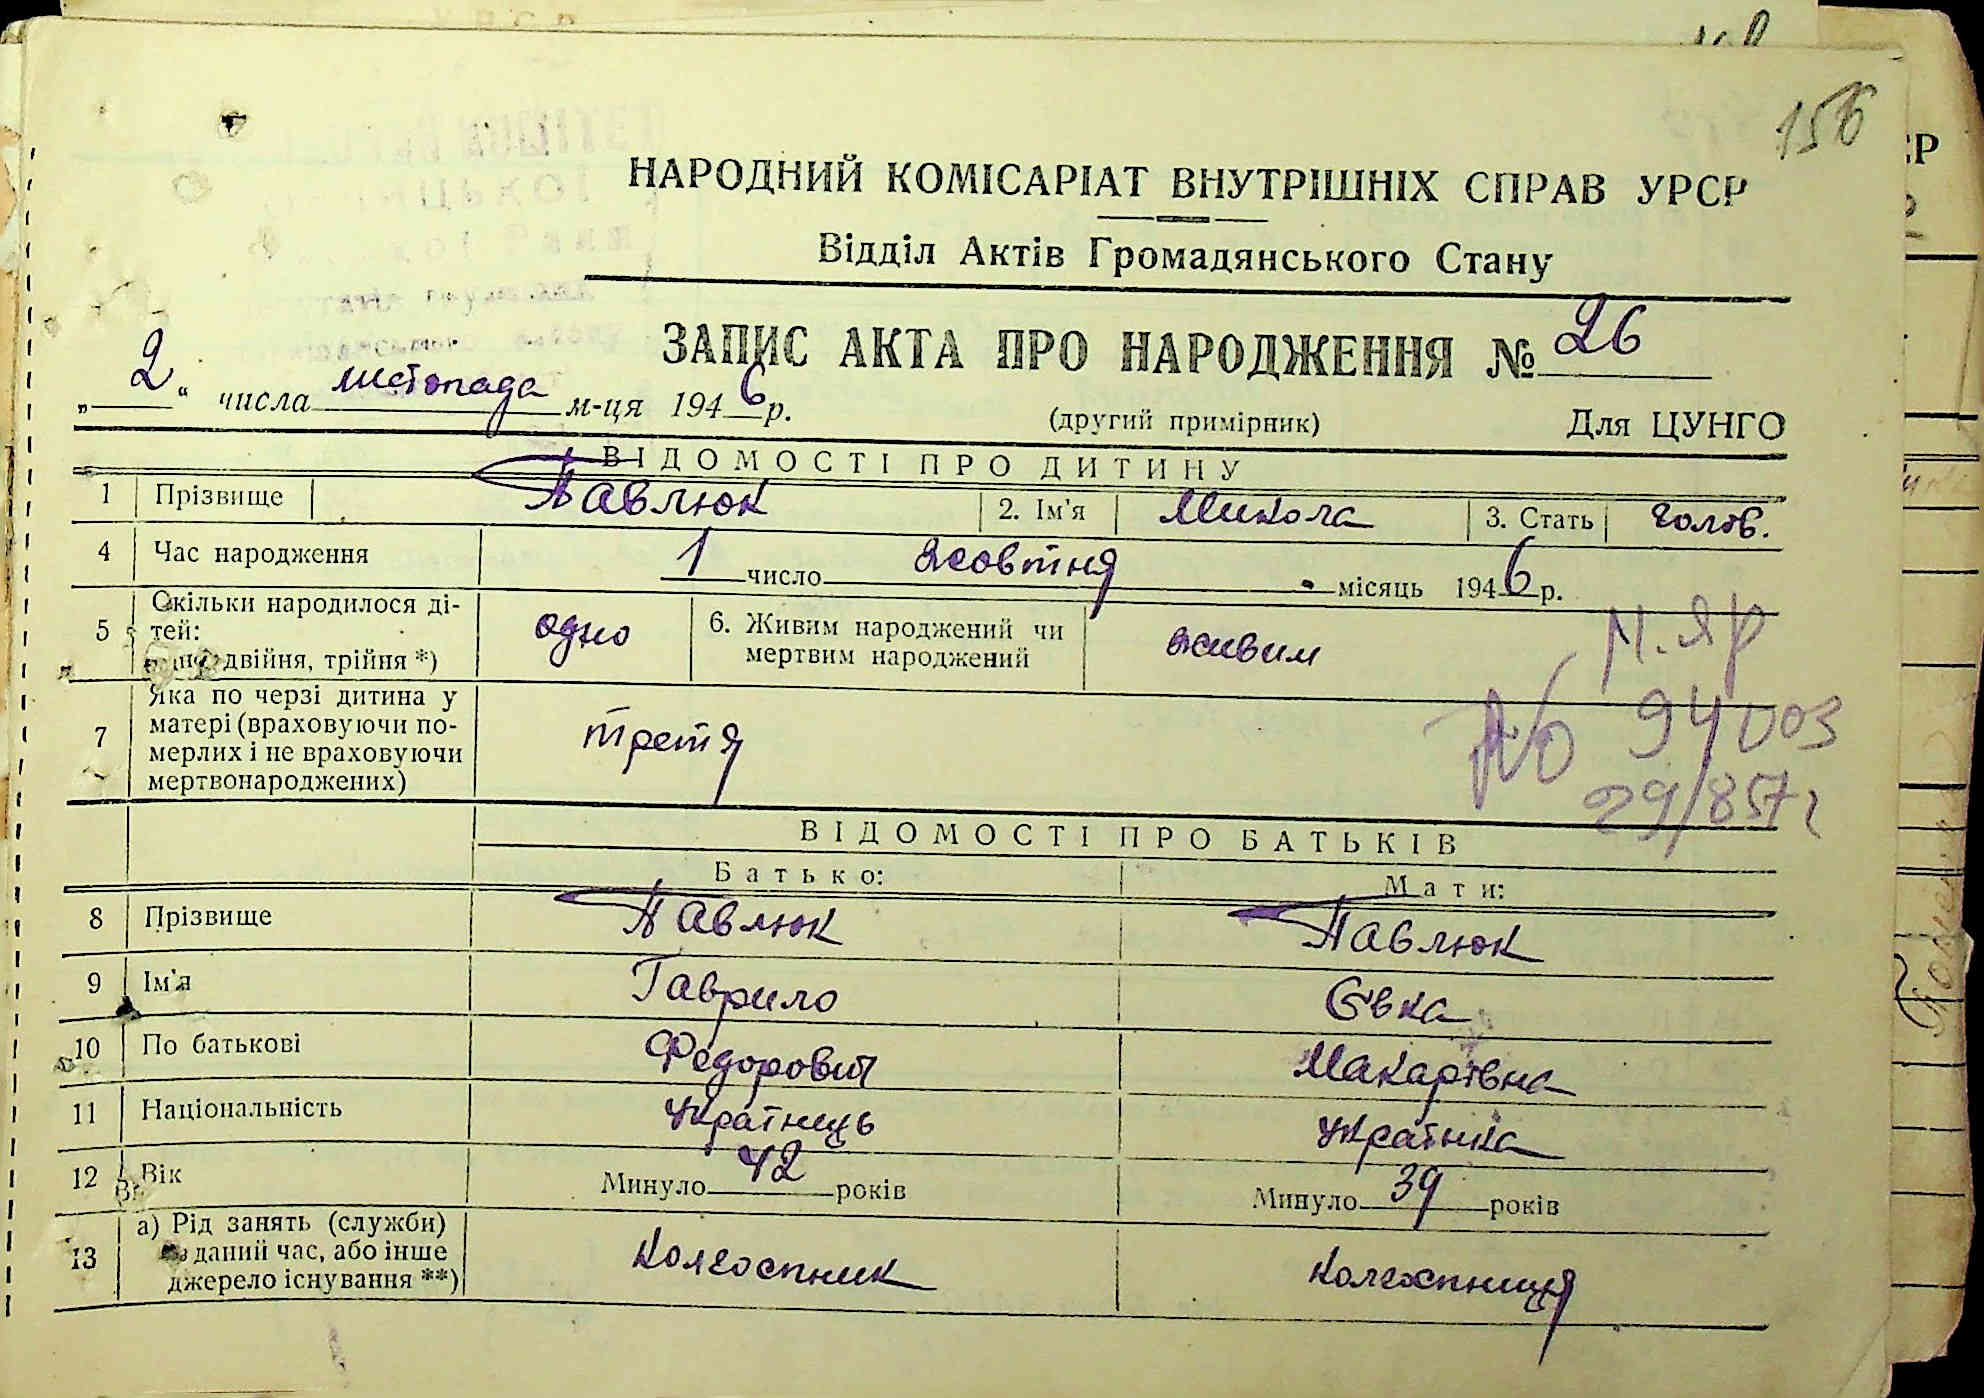 156
НАРОДНИЙ КОМІСАРІАТ ВНУТРІШНІХ СПРАВ УРСР
Відділ Актів Громадянського Стану
ЗАПИС АКТА ПРО НАРОДЖЕННЯ № 26
„2“ числа листопада м-ця 1946 р. (другий примірник) Для ЦУНГО
ВІДОМОСТІ ПРО ДИТИНУ
1 Прізвище Павлюк 2. Ім'я Микола 3. Стать голов.
4 Час народження 1 число жовтня місяць 1946 р.
5 Скільки народилося ді-
тей:
двійня, трійня *) одно 6. Живим народжений чи
мертвим народжений живим
М. Яр
7 Яка по черзі дитина у
матері (враховуючи по-
мерлих і не враховуючи
мертвонароджених) третя
94003
29/857
ВІДОМОСТІ ПРО БАТЬКІВ
Батько: Мати:
8 Прізвище Павлюк Павлюк
9 Ім'я Гаврило Євка
10 По батькові Федорович Макарівна
11 Національність Українець Українка
12 Вік Минуло 42 років Минуло 39 років
13 а) Рід занять (служби)
даний час, або інше
джерело існування **) Колгоспник Колгоспниця